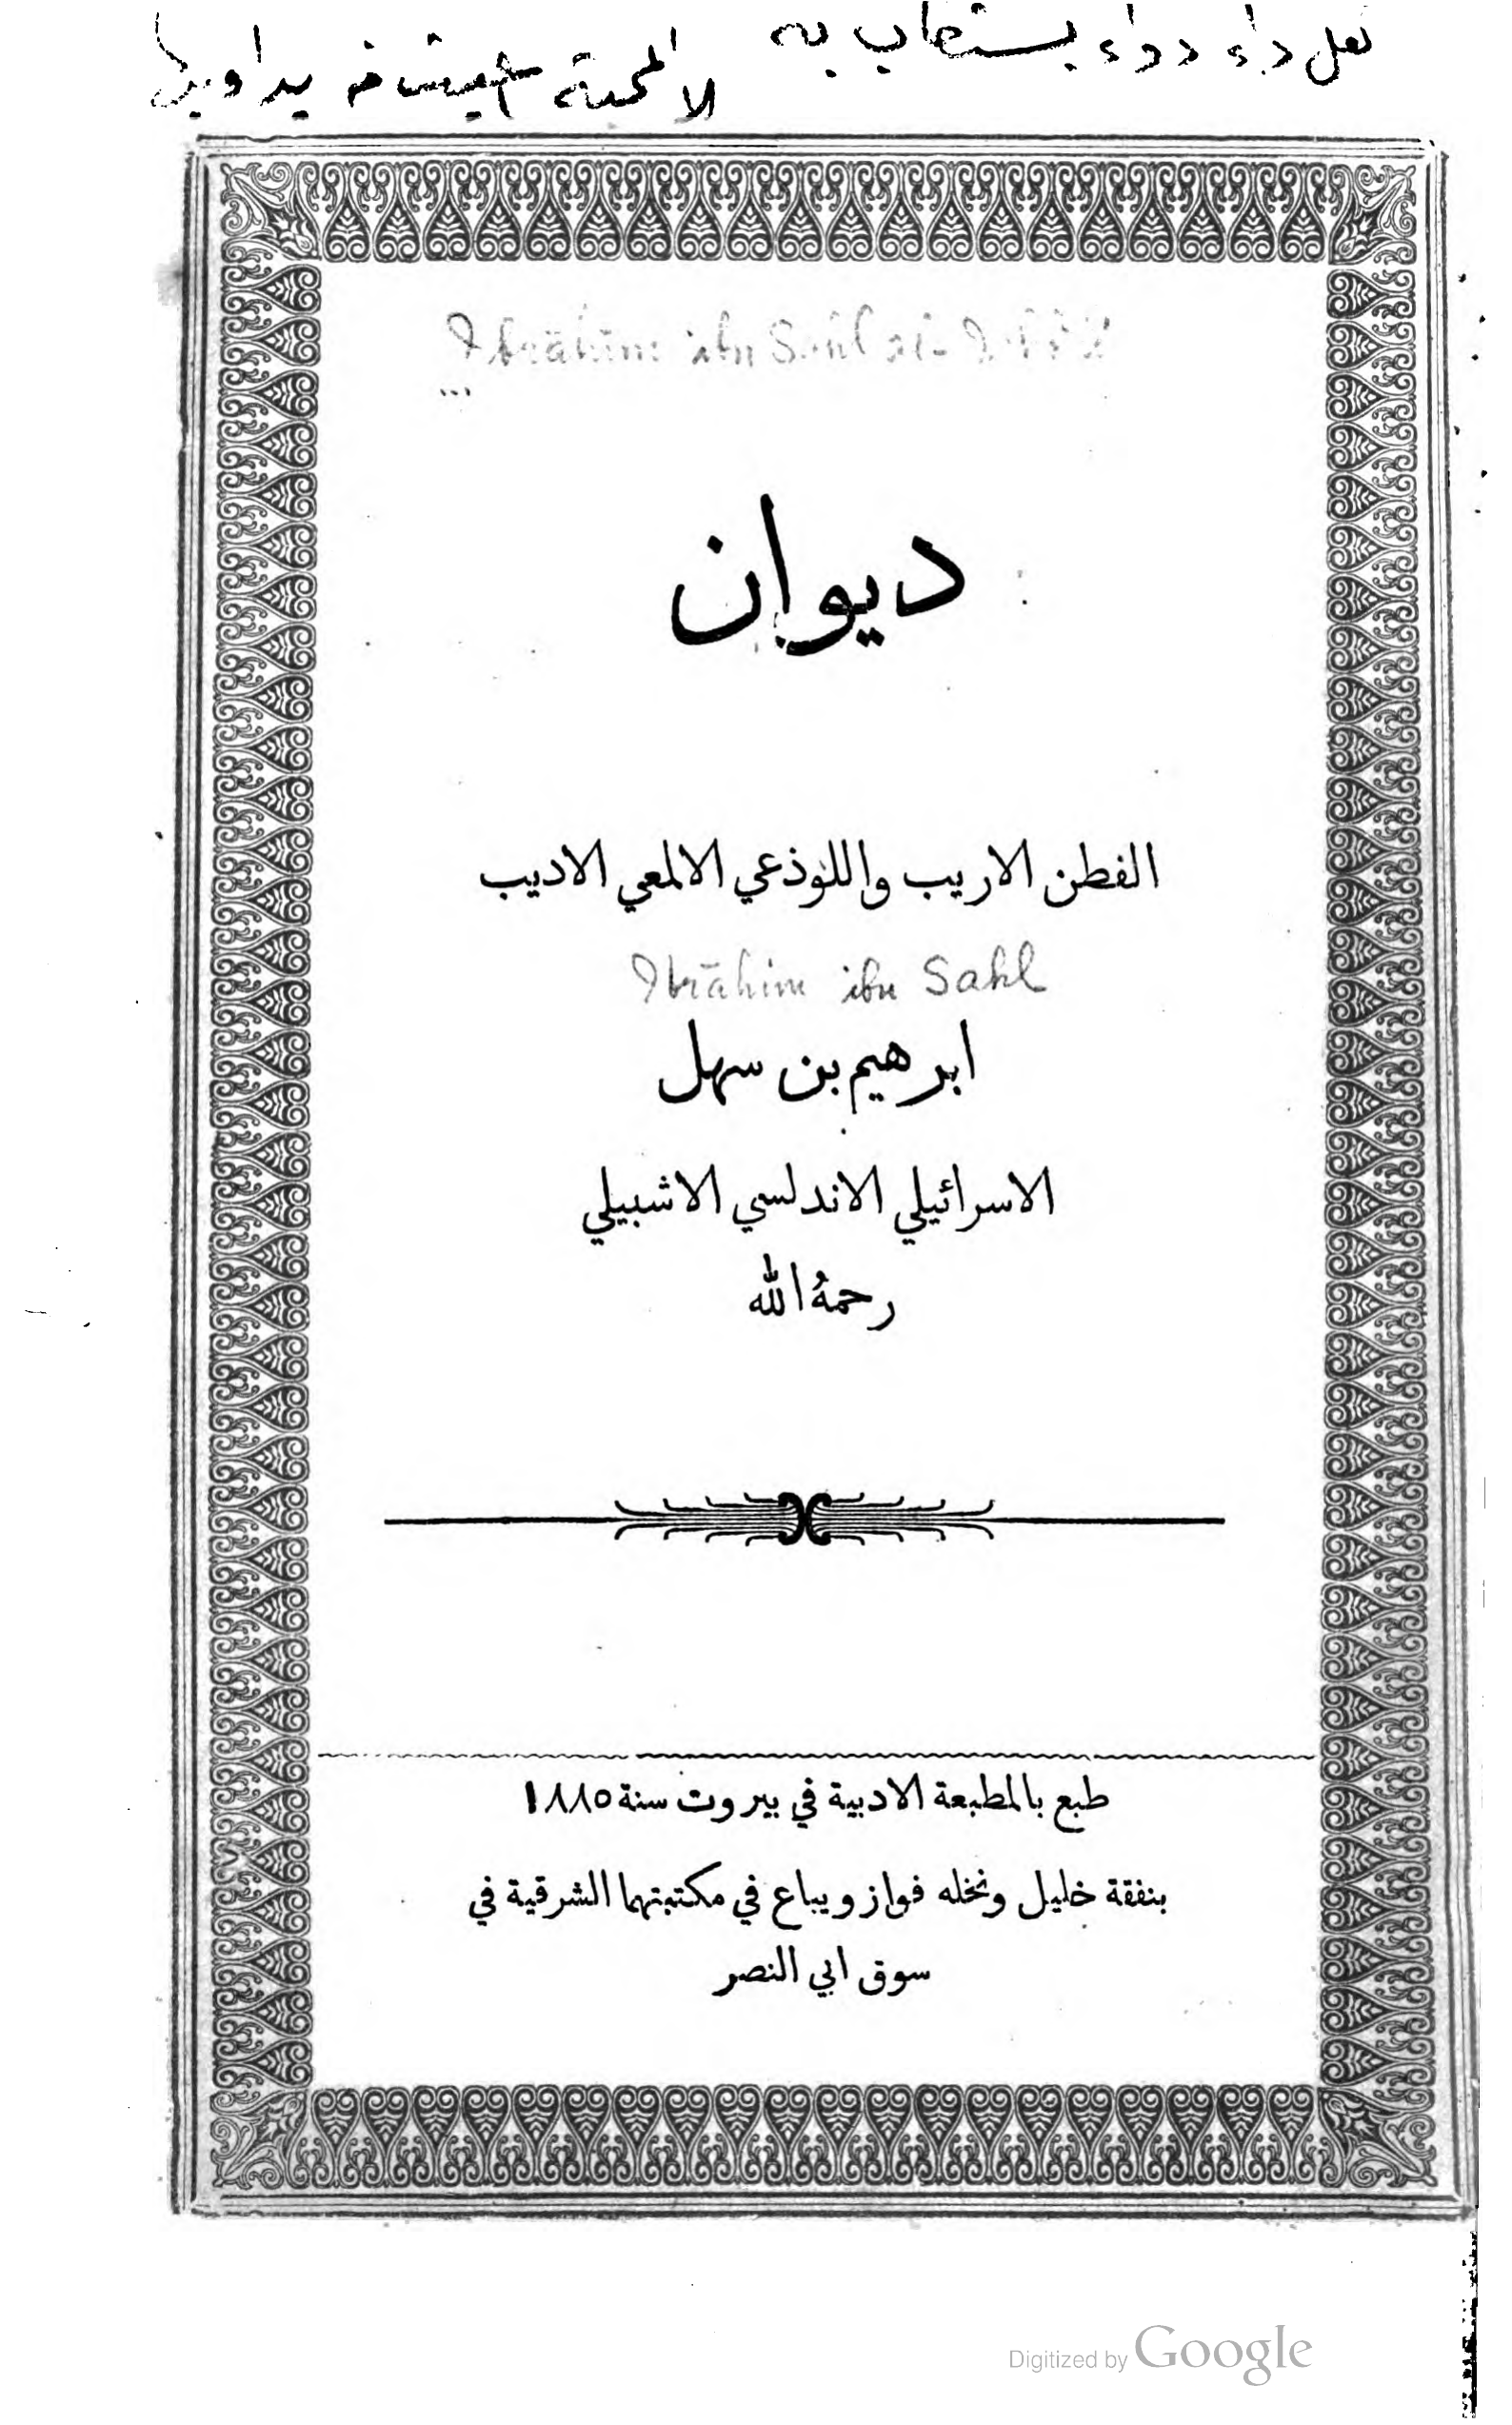 لكل داء دواء يستطاب به
الا المحبة اعيت من يداويها
Ibrāhīm ibn Sahl al-
ديوان
الفطن الاريب واللوذعي الالمعي الاديب
Ibrāhim ibn Sahl
ابرهيم بن سهل
الاسرائيلي الاندلسي الاشبيلي
رحمهُ الله
طبع بالمطبعة الادبية في بيروت سنة ١٨٨٥
بنفقة خليل ونخله فواز ويباع في مكتبتهما الشرقية في
سوق ابي النصر
Digitized by Google